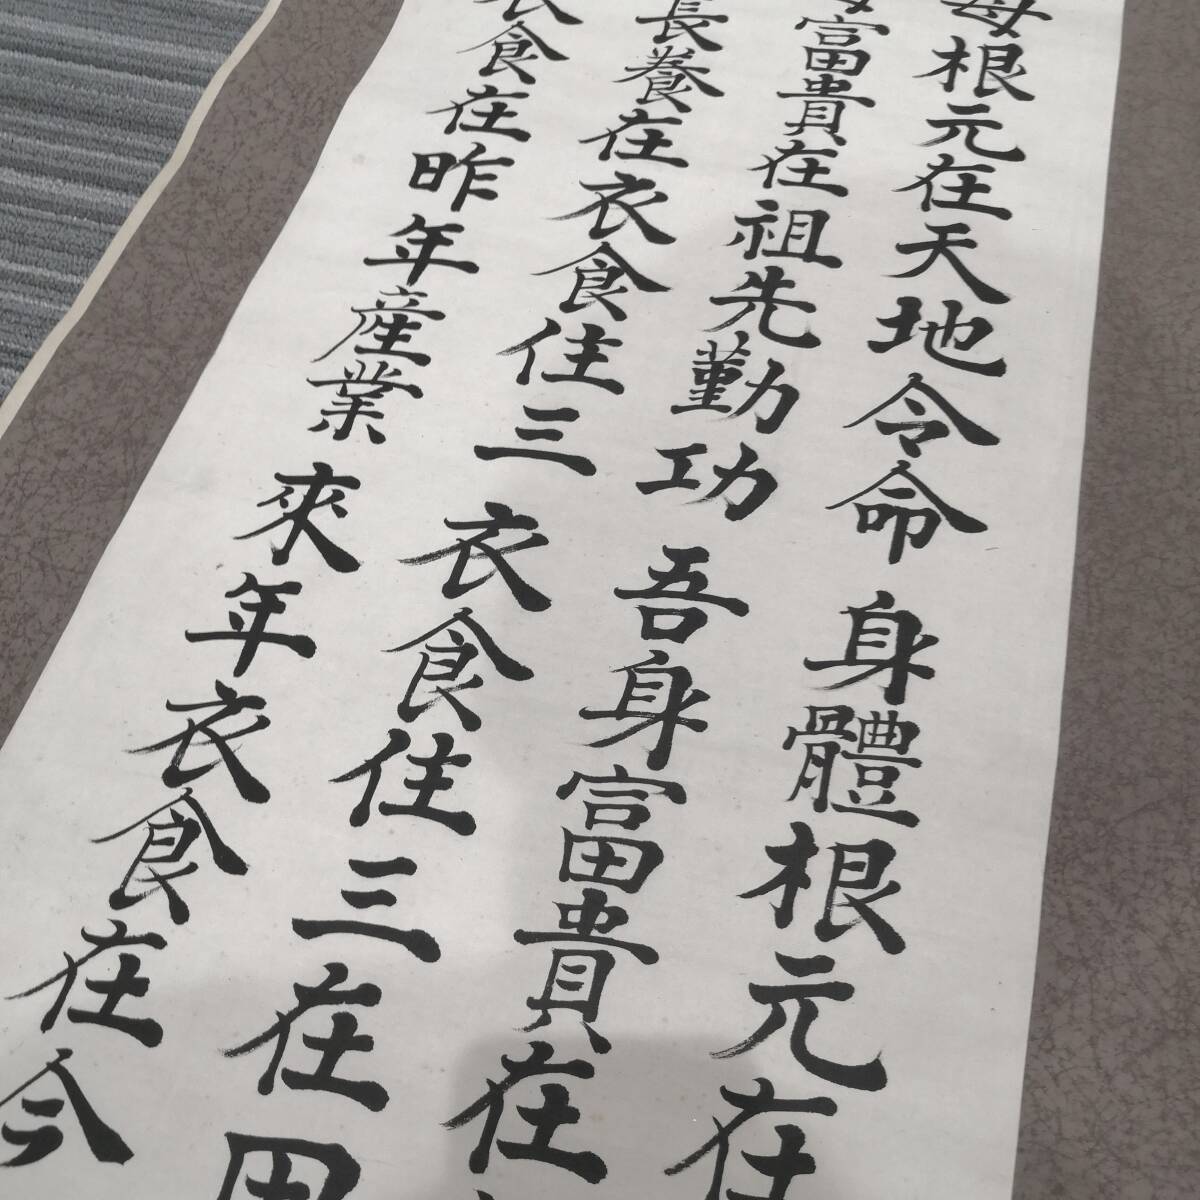 母根元在天地令命 身體根元在
富貴在祖先勤功 吾身富貴在
長養在衣食住三 衣食住三在田
衣食在昨年産業 來年衣食在今